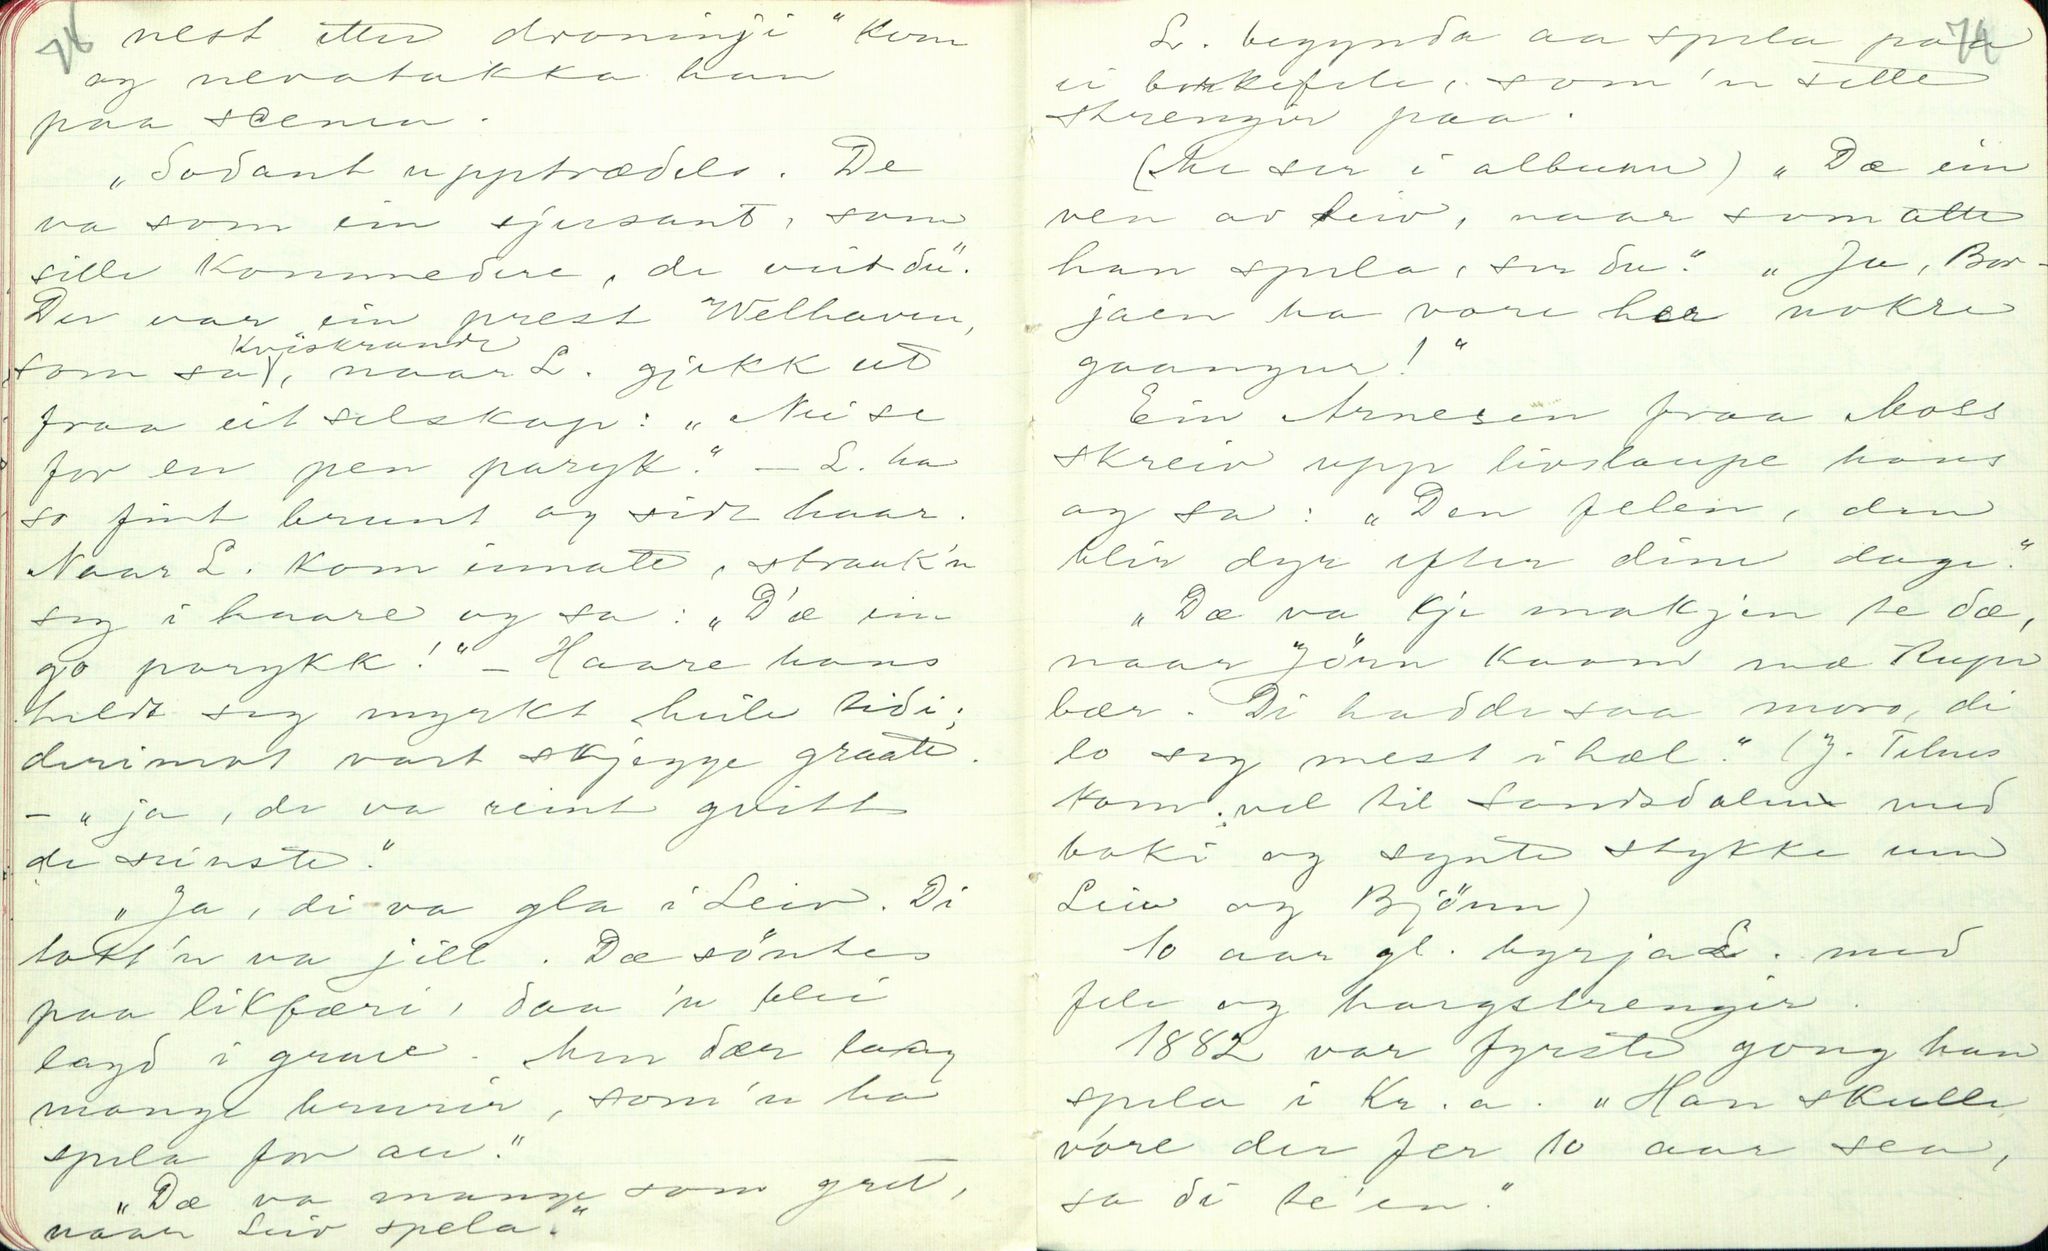 nest etter droningi" kom
og nevatakka han
paa scenen.
"Sodant upptrædels. De
va som ein sjusant, som
sille kommedere, de veit du".
Der var ein prest Welhaven,
kviskrande
som sa, naar L. gjekk ut
fraa eit selskap: "Nei se
for en pen paryk." – L. ha
so fint brunt og sidt haar.
Naar L. kom innatt, strauk'n
seg i haare og sa: "D'æ ein
go parykk!" – Haare hans
heldt seg myrkt heile tidi;
derimot vart skjegge graatt.
– "ja, de va reint gvitt
de seinste."
"Ja, di va gla i Leiv. Di
tott'n va jill. Dæ söntes
paa likfæri, daa 'n blei
lagd i grave. Men dær laag
mange bruur, som'n ha
spela for au."
"Dæ va mange som gret,
naar Leiv spela."
76
L. begynda aa spela paa
ei borkefele, som 'n sette
strengir paa.
(Me ser i album) "Dæ ein
ven av Leiv, naar som atte
han spela, ser du." "Ja, Bor-
jaen ha vore her nokre
gaangur!"
Ein Arnesen fraa Moss
skreiv upp livslaupe hans
og sa: "Den felen, den
blir dyr efter dine dage."
"Dæ va kje makjen te dæ,
naar Jörn kaam mæ Rupe
bær. Di hadde saa moro, di
lo seg mest i hæl." (J. Telnes
kom vel til Sandsdalen med
boki og synte stykke um
Leiv og Björn)
10 aar gl. byrja L. med
fele og hargstrengir.
1882 var fyrste gong han
spela i Kr.a. "Han skulle
vore der fer 10 aar sea,
sa di te'en."